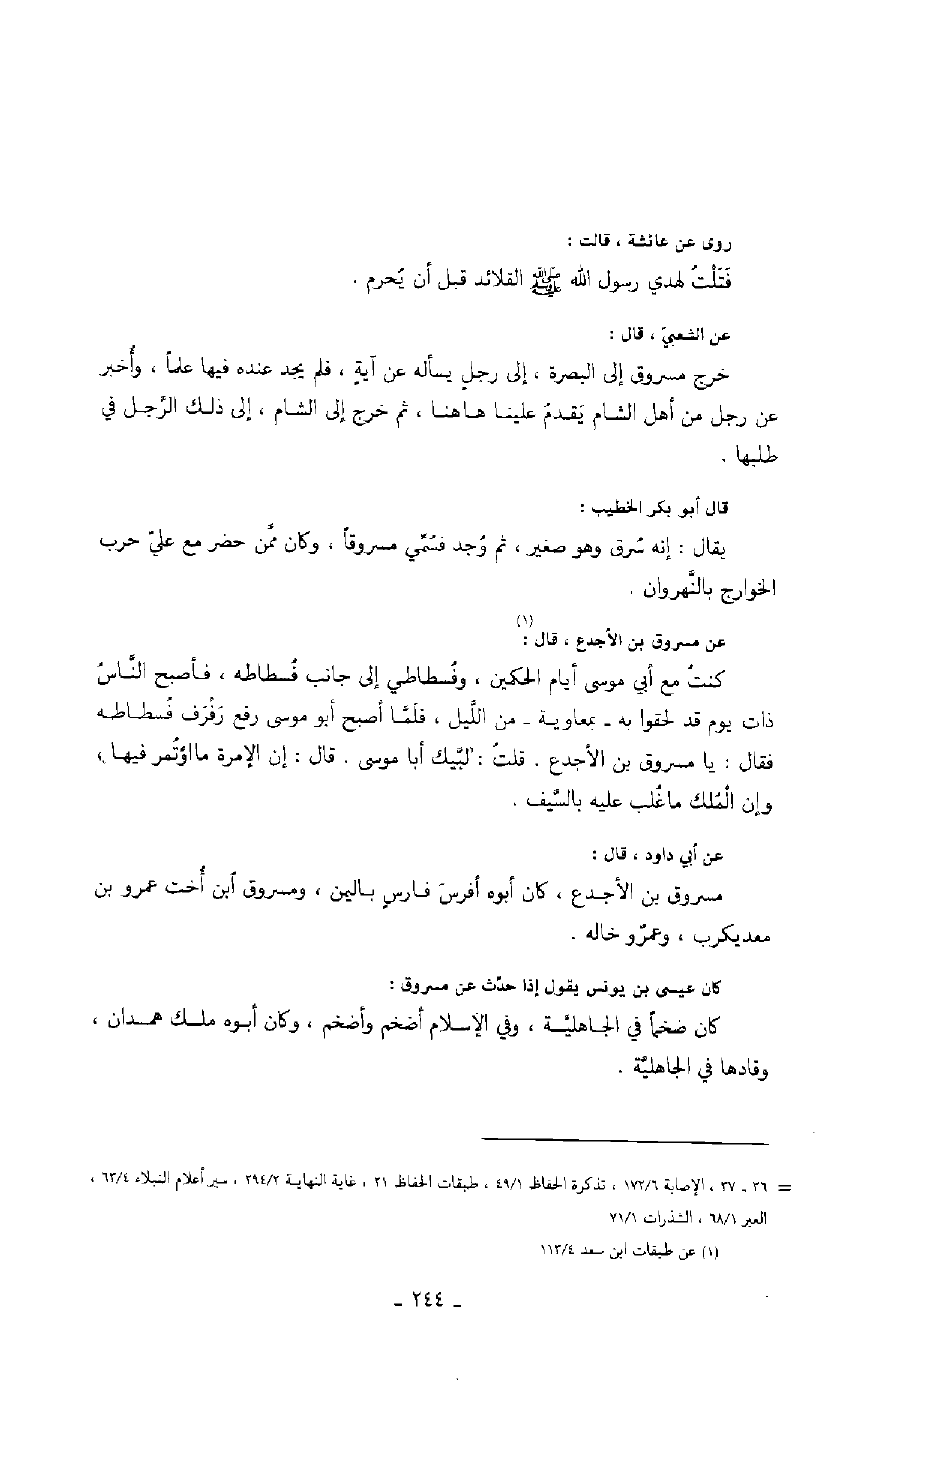 روى عن عائشة ، قالت :
فَتَلْتُ لهدي رسول الله ﷺ القلائد قبل أن يُحرم .
عن الشعبيّ ، قال :
خرج مسروق إلى البصرة ، إلى رجلٍ يسأله عن آيةٍ ، فلم يجد عنده فيها علماً ، وأُخبر
عن رجل من أهل الشام يَقدمُ علينا هاهنا ، ثم خرج إلى الشام ، إلى ذلك الرَّجل في
طلبها .
قال أبو بكر الخطيب :
يقال : إنه سُرق وهو صغير ، ثم وُجد فسُمِّي مسروقاً ، وكان ممَّن حضر مع عليّ حرب
الخوارج بالنَّهروان .
عن مسروق بن الأجدع ، قال (١) :
كنتُ مع أبي موسى أيام الحكمين ، وفُسطاطي إلى جانب فُسطاطه ، فأصبح النَّاسُ
ذات يوم قد لحقوا به ـ بمعاوية ـ من اللَّيل ، فلمَّا أصبح أبو موسى رفع رَفْرَف فُسطاطه
فقال : يا مسروق بن الأجدع . قلتُ : لبَّيك أبا موسى . قال : إن الإمرة مااؤتُمر فيها ،
وإن الُملك ماغُلب عليه بالسَّيف .
عن أبي داود ، قال :
مسروق بن الأجدع ، كان أبوه أفرسَ فارسٍ باليمن ، ومسروق ابن أُخت عمرو بن
معديكرب ، وعمرٌو خاله .
كان عيسى بن يونس يقول إذا حدَّث عن مسروق :
كان ضخماً في الجاهليَّة ، وفي الإسلام أضخم وأضخم ، وكان أبوه ملك همدان ،
وقادها في الجاهليَّة .
= ٣٦ ـ ٣٧ ، الإصابة ١٧٢/٦ ، تذكرة الحفاظ ٤٩/١ ، طبقات الحفاظ ٢١ ، غاية النهاية ٢٩٤/٢ ، سير أعلام النبلاء ٦٣/٤ ،
العبر ٦٨/١ ، الشذرات ٧١/١
(١) عن طبقات ابن سعد ١١٣/٤
ـ ٢٤٤ ـ